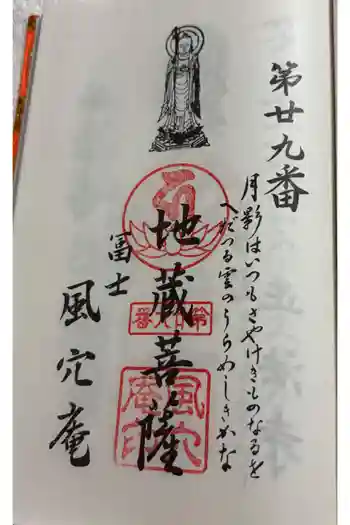 第廿九番
月影はいつもさやけきものなるを
へだつる雲のうらめしきかな
地蔵菩薩
第廿九番
風穴庵印
富士
風穴庵